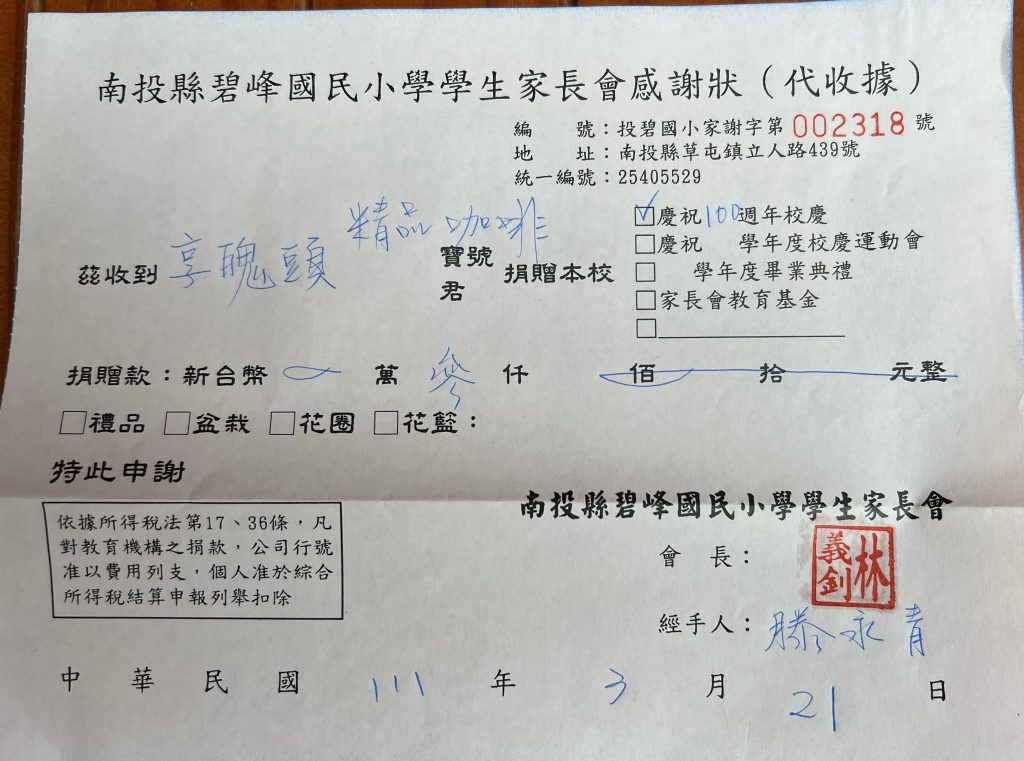 南投縣碧峰國民小學學生家長會感謝狀（代收據）
編　　號：投碧國小家謝字第 002318 號
地　　址：南投縣草屯鎮立人路439號
統一編號：25405529
茲收到 享醜頭 精品咖啡 寶號 君 捐贈本校
☑慶祝100週年校慶
□慶祝　學年度校慶運動會
□　　學年度畢業典禮
□家長會教育基金
□
捐贈款：新台幣　萬 參 仟　佰　拾　元整
□禮品 □盆栽 □花圈 □花籃：
特此申謝
依據所得稅法第17、36條，凡
對教育機構之捐款，公司行號
准以費用列支，個人准於綜合
所得稅結算申報列舉扣除
南投縣碧峰國民小學學生家長會
會　長：林義釗
經手人：滕永青
中 華 民 國 111 年 3 月 21 日